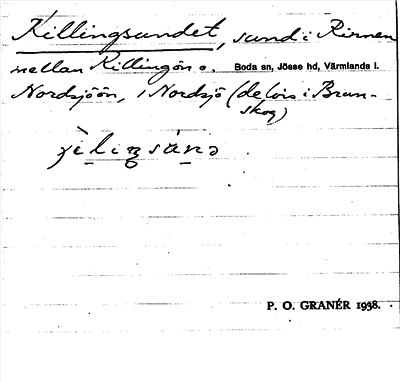 Killingsundet, sund i Rinnen
mellan Killingön o. Boda sn, Jösse hd, Värmlands l.
Nordsjöön, i Nordsjö (delvis i Brun-
skog)
P. O. GRANÉR 1938.